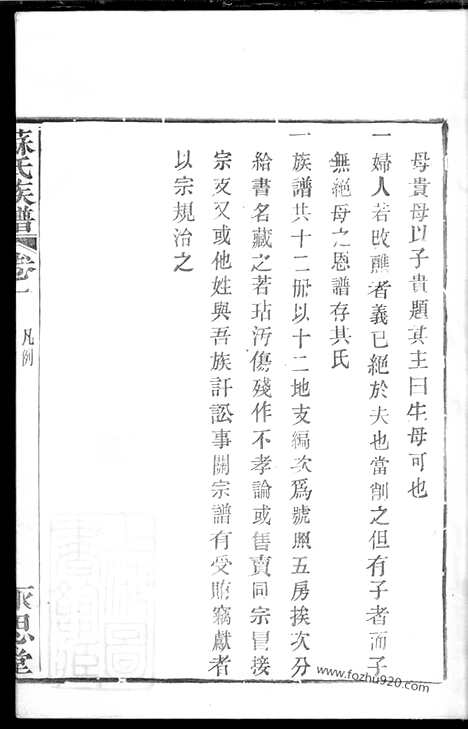 母貴母以子貴題其主曰生母可也
一婦人若改醮者義已絕於夫也當削之但有子者而子
無絕母之恩譜存其氏
一族譜共十二冊以十二地支編次爲號照五房挨次分
給書名藏之若玷汚傷殘作不孝論或售賣同宗冒接
宗支又或他姓與吾族訐訟事關宗譜有受賄竊獻者
以宗規治之
蘇氏族譜
卷一
凡例
永思堂
www.fozhu920.com